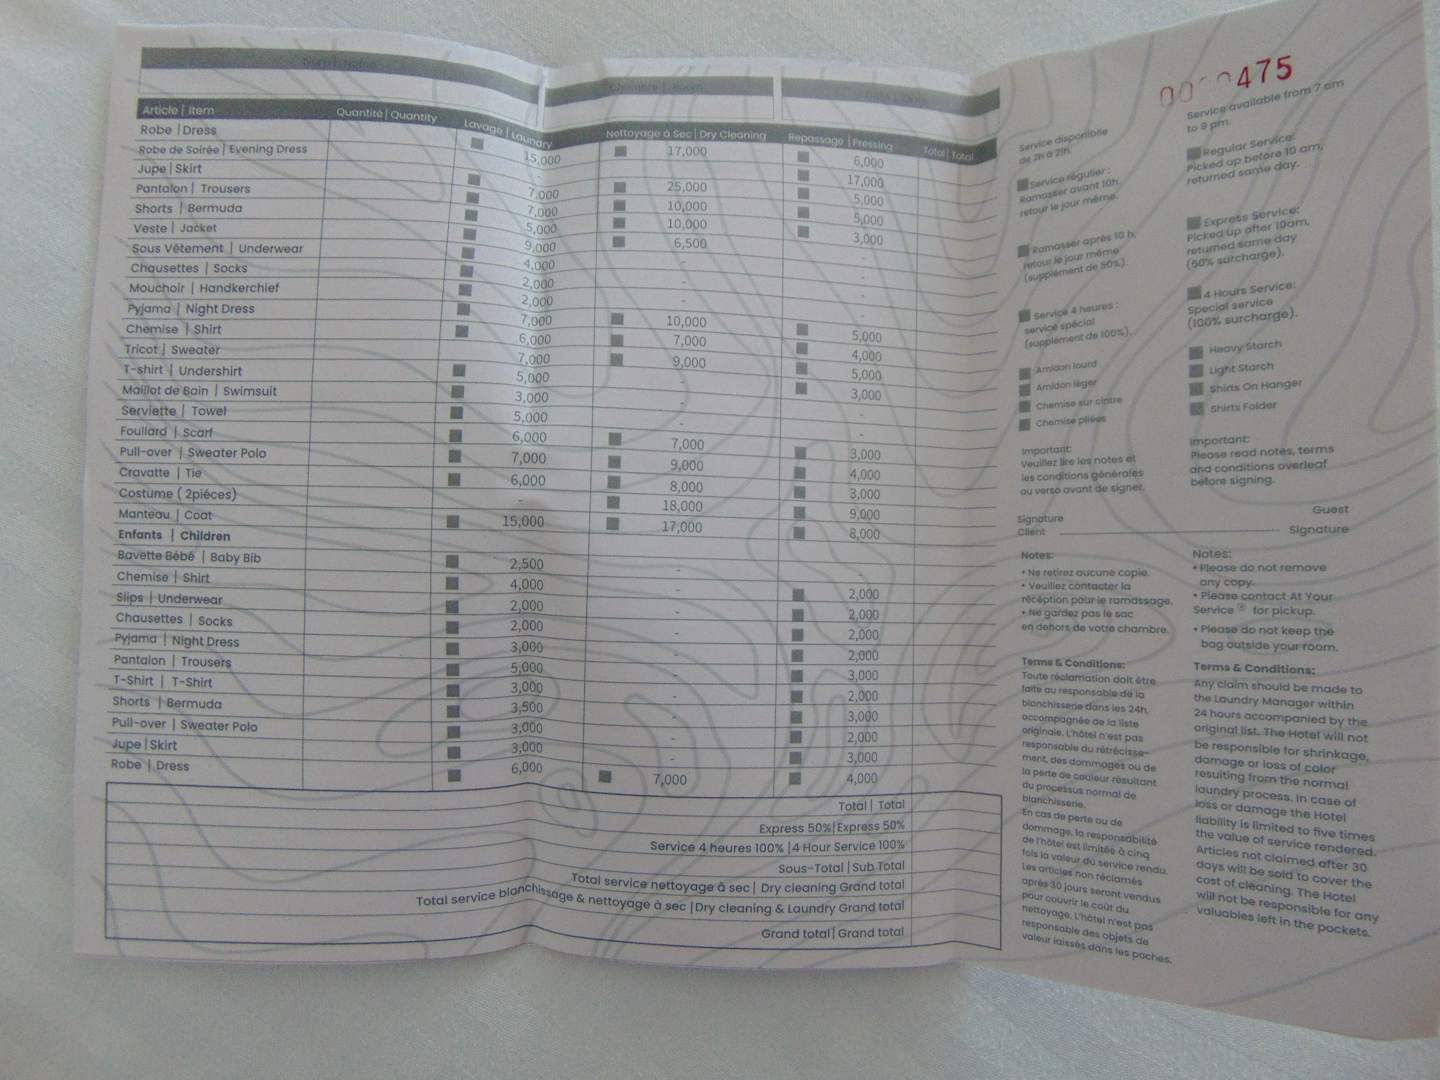 0000475
Nom | Name
Chambre | Room
Article | Item Quantité | Quantity Lavage | Laundry Nettoyage à Sec | Dry Cleaning Repassage | Pressing Total | Total
Robe | Dress 15,000 17,000 6,000
Robe de Soirée | Evening Dress - 25,000 17,000
Jupe | Skirt 7,000 10,000 5,000
Pantalon | Trousers 7,000 10,000 5,000
Shorts | Bermuda 5,000 6,500 3,000
Veste | Jacket 9,000 - -
Sous Vêtement | Underwear 4,000 - -
Chausettes | Socks 2,000 - -
Mouchoir | Handkerchief 2,000 - -
Pyjama | Night Dress 7,000 10,000 5,000
Chemise | Shirt 6,000 7,000 4,000
Tricot | Sweater 7,000 9,000 5,000
T-shirt | Undershirt 5,000 - 3,000
Maillot de Bain | Swimsuit 3,000 - -
Serviette | Towel 5,000 - -
Foullard | Scarf 6,000 7,000 3,000
Pull-over | Sweater Polo 7,000 9,000 4,000
Cravatte | Tie 6,000 8,000 3,000
Costume ( 2piéces) - 18,000 9,000
Manteau | Coat 15,000 17,000 8,000
Enfants | Children
Bavette Bébé | Baby Bib 2,500 - -
Chemise | Shirt 4,000 - 2,000
Slips | Underwear 2,000 - 2,000
Chausettes | Socks 2,000 - 2,000
Pyjama | Night Dress 3,000 - 2,000
Pantalon | Trousers 5,000 - 3,000
T-Shirt | T-Shirt 3,000 - 2,000
Shorts | Bermuda 3,500 - 3,000
Pull-over | Sweater Polo 3,000 - 2,000
Jupe | Skirt 3,000 - 3,000
Robe | Dress 6,000 7,000 4,000
Total | Total
Express 50% | Express 50%
Service 4 heures 100% | 4 Hour Service 100%
Sous-Total | Sub Total
Total service nettoyage à sec | Dry cleaning Grand total
Total service blanchissage & nettoyage à sec | Dry cleaning & Laundry Grand total
Grand total | Grand total
Service disponible
de 7h à 21h.
Service régulier :
Ramasser avant 10h,
retour le jour même.
Ramasser après 10 h,
retour le jour même
(supplément de 50%).
Service 4 heures :
service spécial
(supplément de 100%).
Amidon lourd
Amidon léger
Chemise sur cintre
Chemise pliées
Important:
Veuillez lire les notes et
les conditions générales
au verso avant de signer.
Signature
Client
Notes:
• Ne retirez aucune copie.
• Veuillez contacter la
réception pour le ramassage.
• Ne gardez pas le sac
en dehors de votre chambre.
Terms & Conditions:
Toute réclamation doit être
faite au responsable de la
blanchisserie dans les 24h,
accompagnée de la liste
originale. L'hôtel n'est pas
responsable du rétrécisse-
ment, des dommages ou de
la perte de couleur résultant
du processus normal de
blanchisserie.
En cas de perte ou de
dommage, la responsabilité
de l'hôtel est limitée à cinq
fois la valeur du service rendu.
Les articles non réclamés
après 30 jours seront vendus
pour couvrir le coût du
nettoyage. L'hôtel n'est pas
responsable des objets de
valeur laissés dans les poches.
Service available from 7 am
to 9 pm.
Regular Service:
Picked up before 10 am,
returned same day.
Express Service:
Picked up after 10am,
returned same day
(50% surcharge).
4 Hours Service:
Special service
(100% surcharge).
Heavy Starch
Light Starch
Shirts On Hanger
Shirts Folder
Important:
Please read notes, terms
and conditions overleaf
before signing.
Guest
Signature
Notes:
• Please do not remove
any copy.
• Please contact At Your
Service ® for pickup.
• Please do not keep the
bag outside your room.
Terms & Conditions:
Any claim should be made to
the Laundry Manager within
24 hours accompanied by the
original list. The Hotel will not
be responsible for shrinkage,
damage or loss of color
resulting from the normal
laundry process. In case of
loss or damage the Hotel
liability is limited to five times
the value of service rendered.
Articles not claimed after 30
days will be sold to cover the
cost of cleaning. The Hotel
will not be responsible for any
valuables left in the pockets.